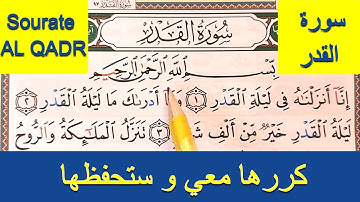 Sourate
AL QADR
سورة
القدر
٩٧
سُورَةُ الْقَدْرِ
بِسْمِ اللَّهِ الرَّحْمَٰنِ الرَّحِيمِ
إِنَّا أَنزَلْنَاهُ فِي لَيْلَةِ الْقَدْرِ ١ أَدْرَاكَ مَا لَيْلَةُ الْقَدْرِ ٢
لَيْلَةُ الْقَدْرِ خَيْرٌ مِّنْ أَلْفِ ٣ تَنَزَّلُ الْمَلَائِكَةُ وَالرُّوحُ
كررها معي و ستحفظها